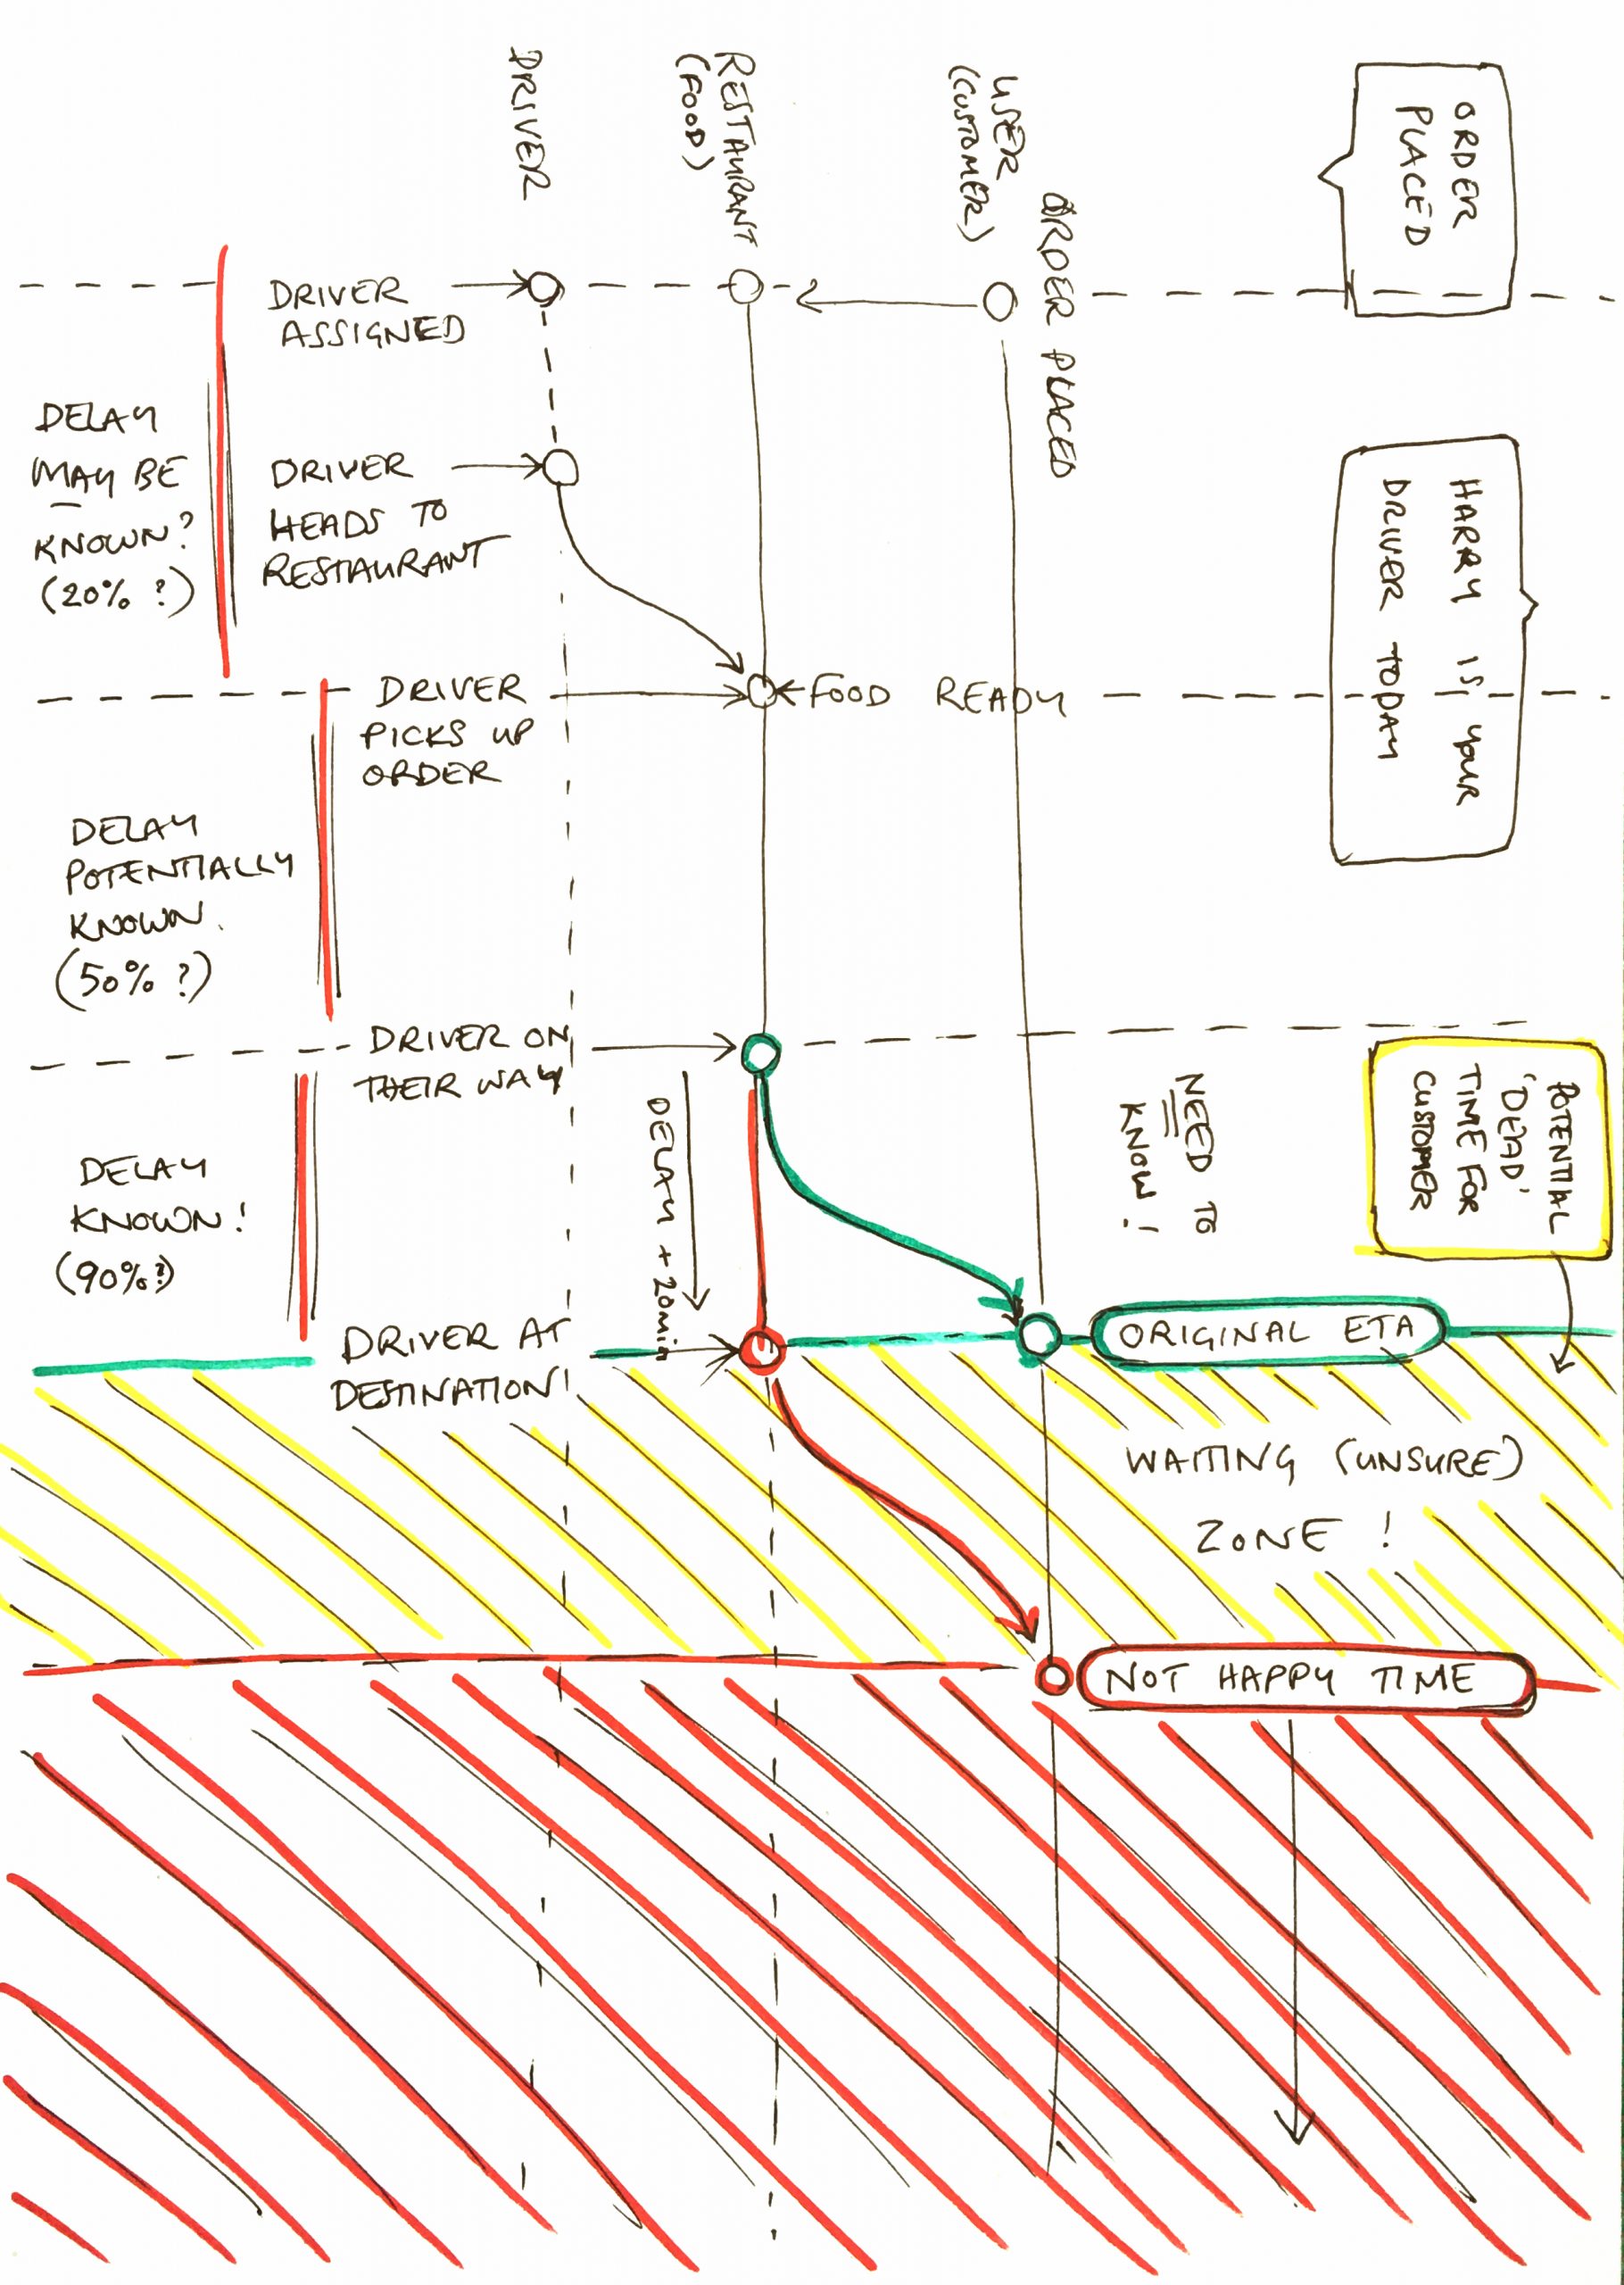 ORDER
PLACED
DRIVER
RESTAURANT
(FOOD)
USER
(CUSTOMER)
ORDER PLACED
DRIVER
ASSIGNED
DELAY
MAY BE
KNOWN?
(20% ?)
DRIVER
HEADS TO
RESTAURANT
HARRY IS YOUR
DRIVER TODAY
DRIVER
PICKS UP
ORDER
FOOD READY
DELAY
POTENTIALLY
KNOWN.
(50% ?)
DRIVER ON
THEIR WAY
DELAY + 20MIN
NEED TO
KNOW!
POTENTIAL
'DEAD'
TIME FOR
CUSTOMER
DELAY
KNOWN!
(90%?)
DRIVER AT
DESTINATION
ORIGINAL ETA
WAITING (UNSURE)
ZONE !
NOT HAPPY TIME